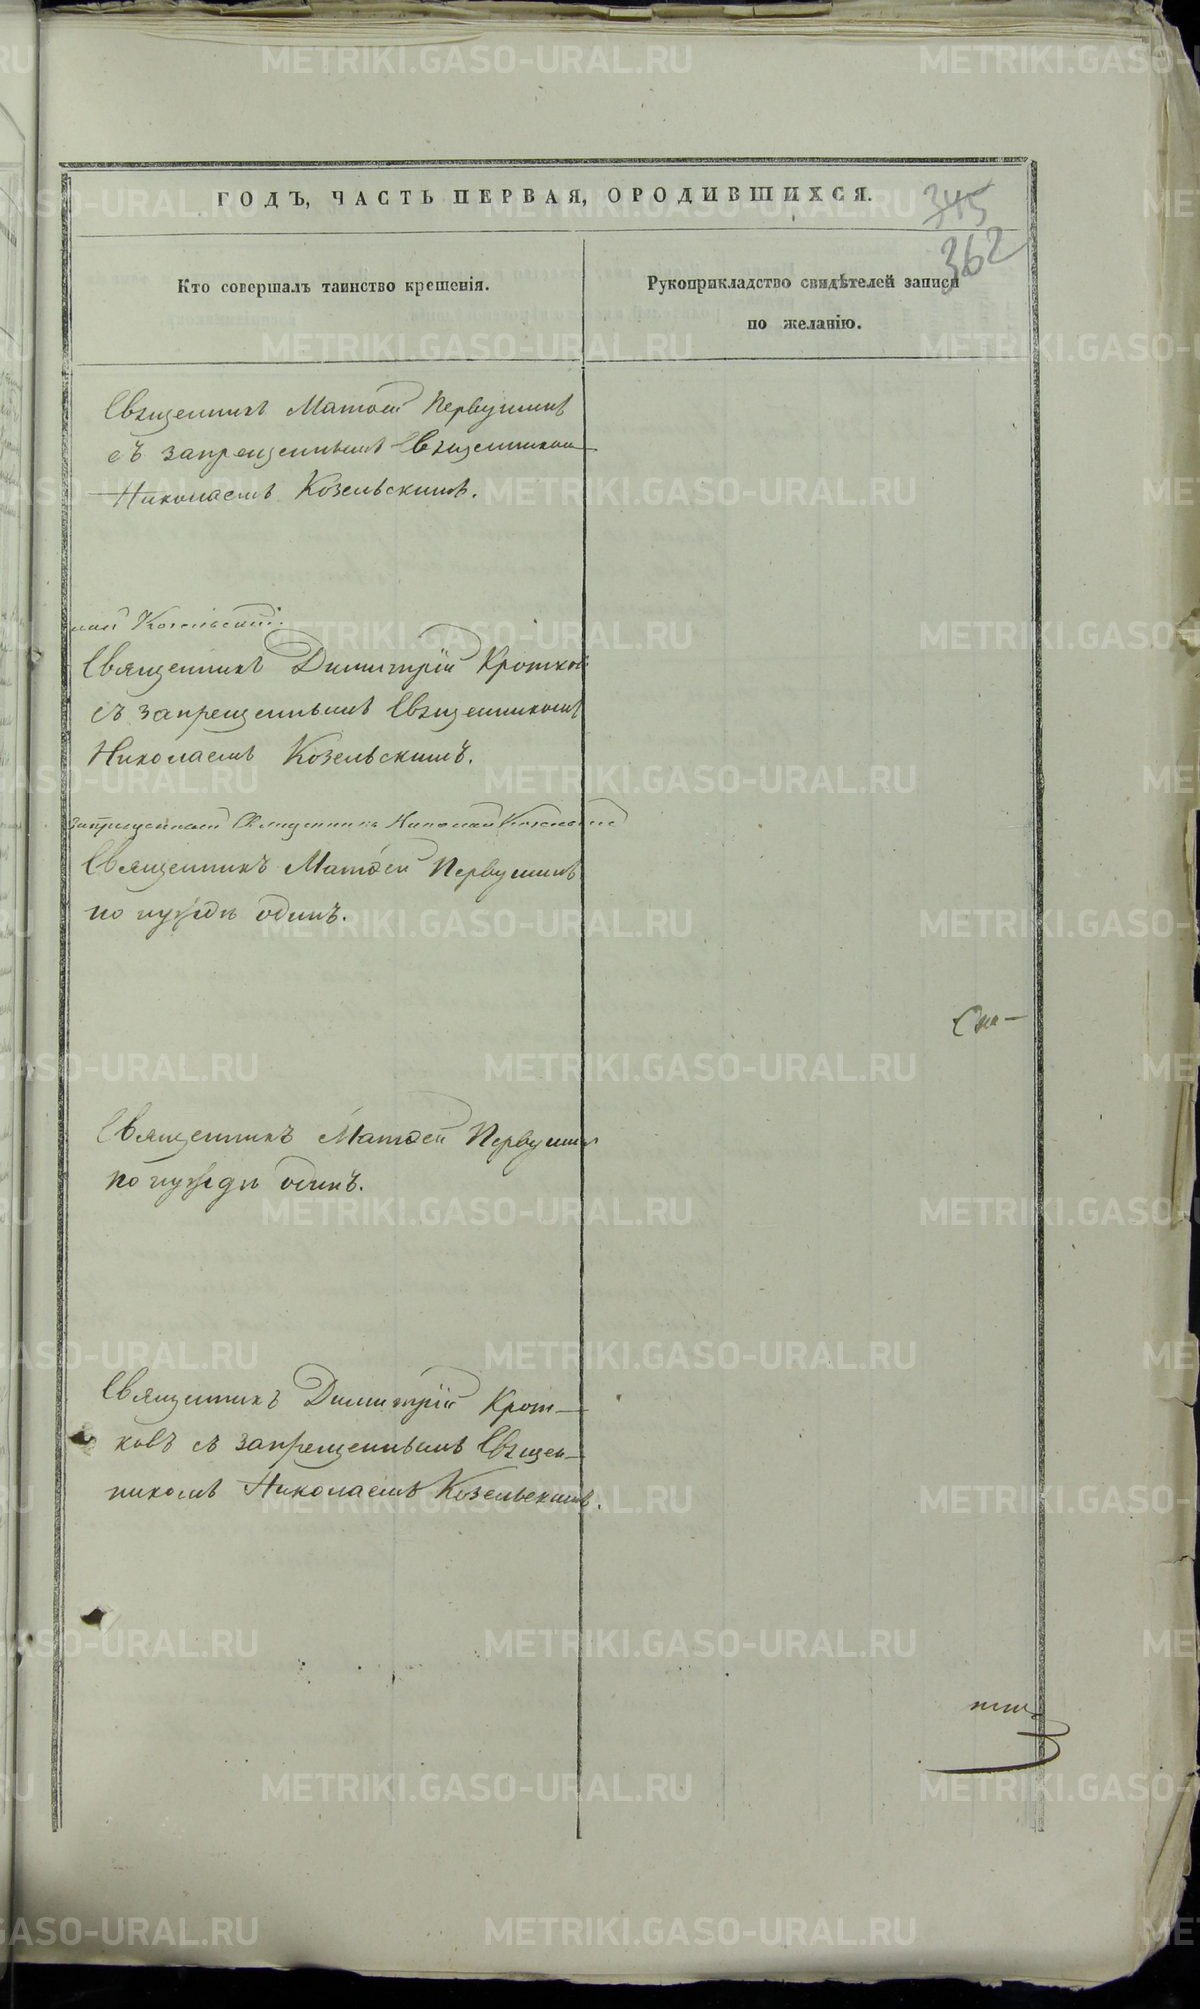 ГОДЪ, ЧАСТЬ ПЕРВАЯ, ОРОДИВШИХСЯ.
345
362
Кто совершалъ таинство крещенія.
Рукоприкладство свидѣтелей записи
по желанію.
Священникъ Матѳей Первушинъ
съ запрещеннымъ Священникомъ
Николаемъ Козельскимъ.
лай Козельскій.
Священникъ Димитрій Кротков
съ запрещеннымъ Священникомъ
Николаемъ Козельскимъ.
Запрещенный Священникъ Николай Козельскій
Священникъ Матѳей Первушинъ
по нуждѣ одинъ.
Священникъ Матѳей Первушин
по нуждѣ одинъ.
Священникъ Димитрій Крот-
ковъ съ запрещеннымъ Священ-
никомъ Николаемъ Козельскимъ.
METRIKI.GASO-URAL.RU